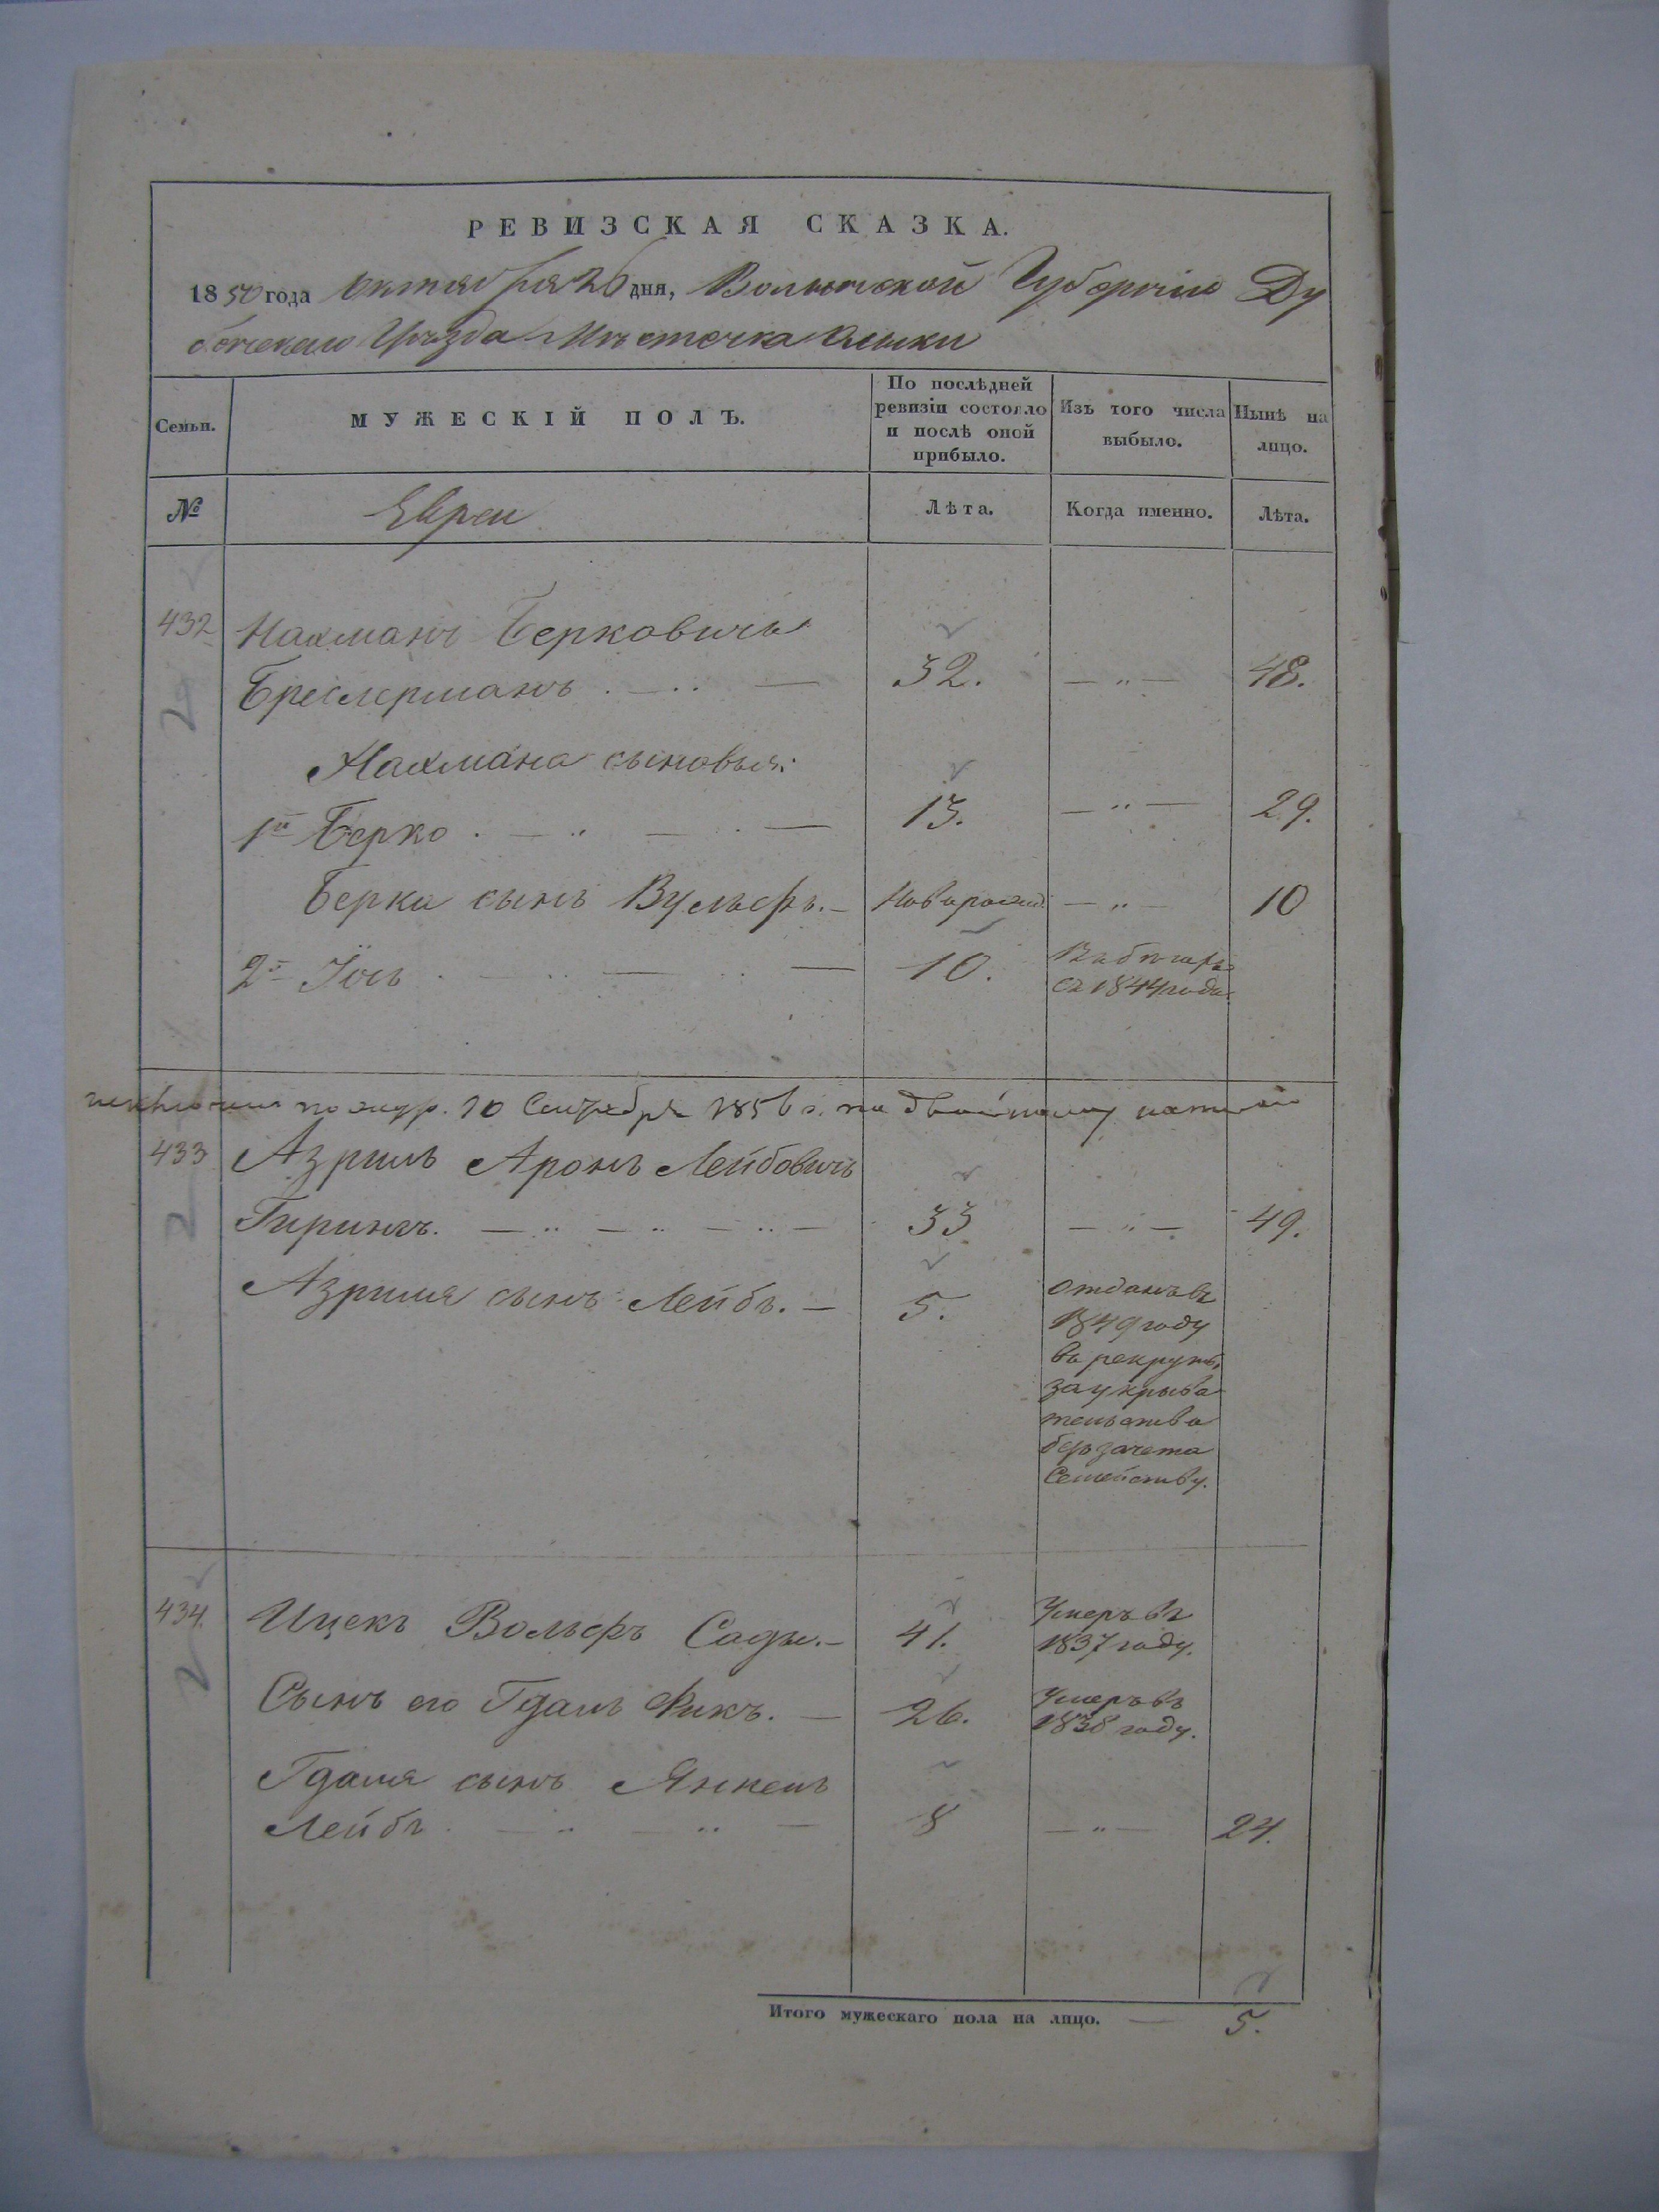 РЕВИЗСКАЯ СКАЗКА.
1850 года октября 26 дня, Волынской Губерніи Ду
бенскаго Уѣзда Мѣстечка Олыки
Семьи. МУЖЕСКІЙ ПОЛЪ. По послѣдней ревизіи состояло и послѣ оной прибыло. Изъ того числа выбыло. Нынѣ на лицо.
№ Евреи Лѣта. Когда именно. Лѣта.
432 Нахманъ Берковичъ
Бреслерманъ 32. — „ — 48.
Нахмана сыновья:
1й Берко 13. — „ — 29.
Берка сынъ Вульфъ. Новорожд. — „ — 10
2й Іось 10. Въ бѣгахъ
съ 1844 года
10 Сентября 1856 г. по
433 Азриль Аронъ Лейбовичъ
Гиринъ. 33 — „ — 49.
Азриля сынъ Лейбъ. 5. Отданъ въ
1849 году
въ рекруты
за укрыва
тельство
безъ зачета
Семейству.
434. Ицекъ Вольфъ 41. Умеръ въ
1837 году.
Сынъ его Гдаль Фикъ. 26. Умеръ въ
1838 году.
Гдаля сынъ Янкель
Лейбъ 8 — „ — 24.
Итого мужескаго пола на лицо. — 5.